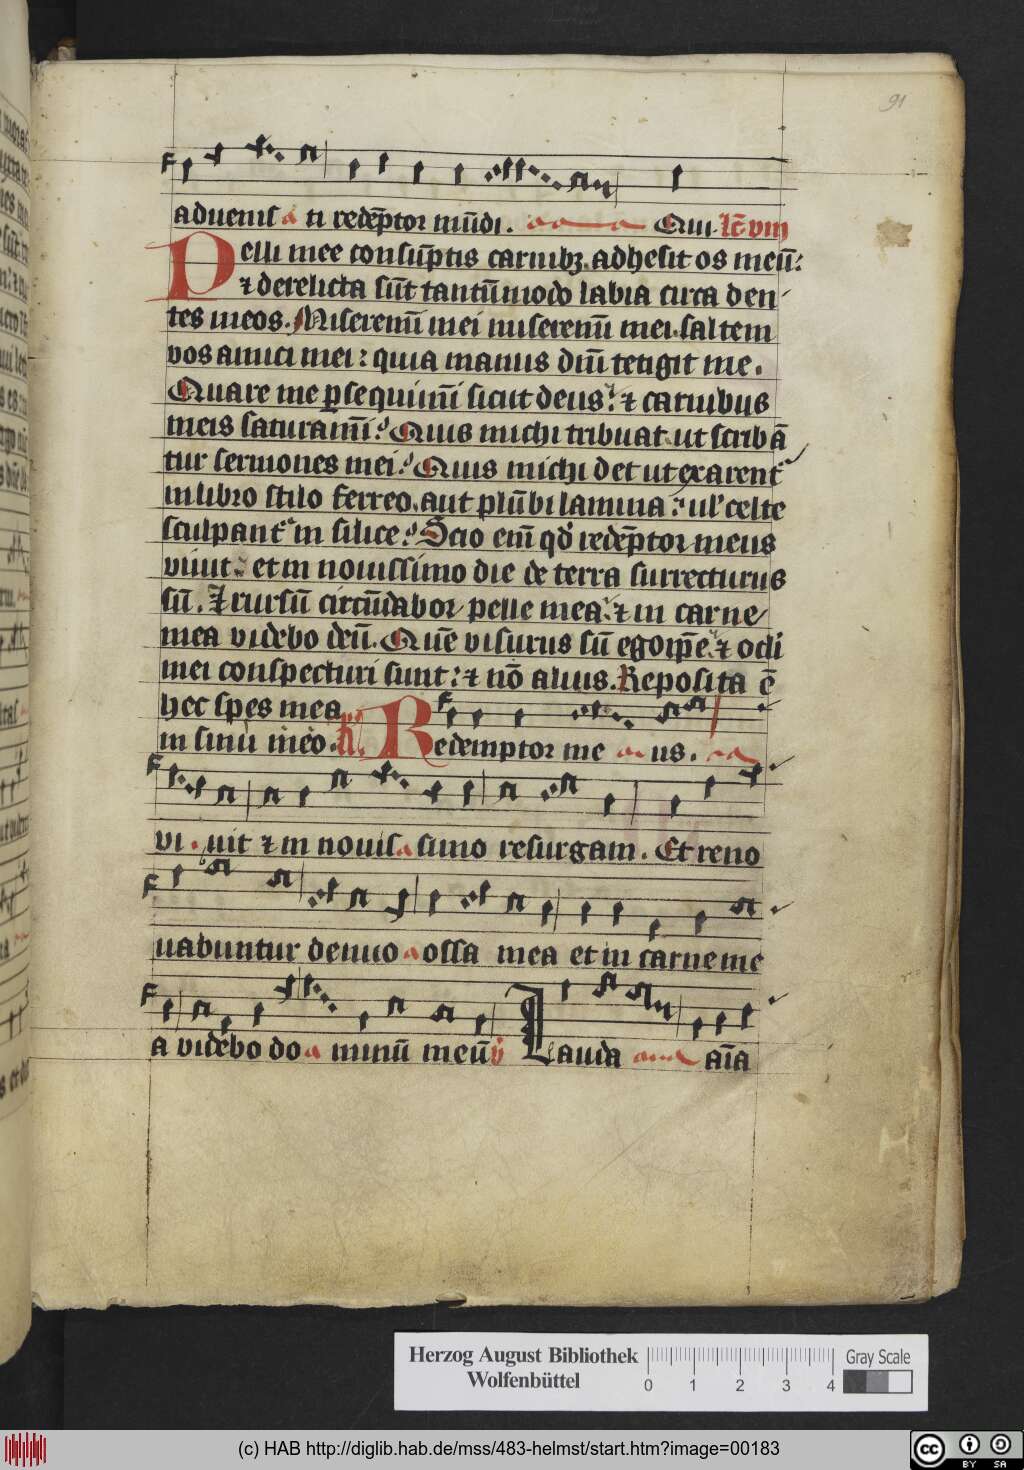 91
aduenisti redēptor mūdi. Qui. lc̄ viii
Pelli mee consūptis carnibꝫ. adhesit os meū:
⁊ derelicta sūt tantūmodo labia circa den
tes meos. Miseremī mei miseremī mei. saltem
vos amici mei: quia manus dnī tetigit me.
Quare me ꝑsequimī sicut deus: ⁊ carnibus
meis saturamī? Quis michi tribuat ut scribā
tur sermones mei? Quis michi det ut exarent᷑
in libro stilo ferreo. aut plūbi lamina: ul' celte
sculpant᷑ in silice? Scio enī qd' redēptor meus
viuit: et in nouissimo die de terra surrecturus
sū. Et rursū circūdabor pelle mea: ⁊ in carne
mea videbo deū. Quē visurus sū ego ip̄e ⁊ oc̄li
mei conspecturi sunt: ⁊ nō alius. Reposita ē
hec spes mea
in sinu meo. R. Redemptor me us.
vi uit ⁊ in nouissimo resurgam. Et reno
uabuntur denuo ossa mea et in carne me
a videbo do minū meū v̄ Lauda aīa
Herzog August Bibliothek
Wolfenbüttel
0 1 2 3 4
Gray Scale
(c) HAB http://diglib.hab.de/mss/483-helmst/start.htm?image=00183
cc BY SA